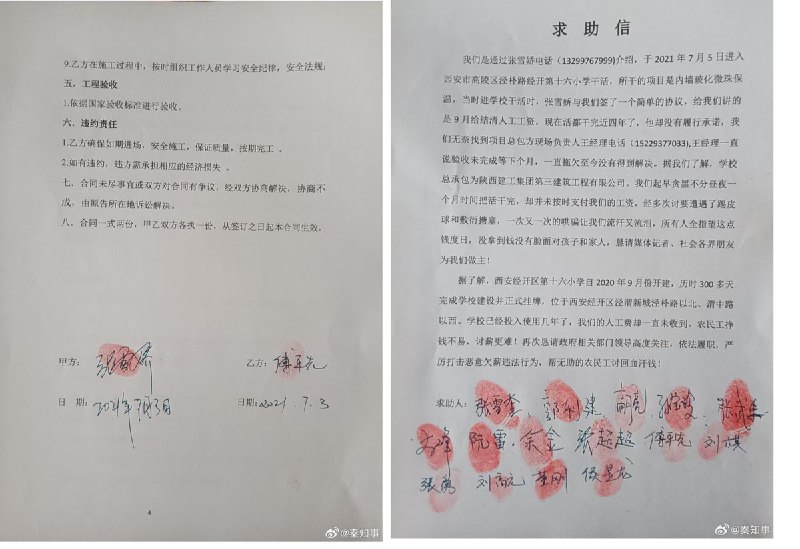 9.乙方在施工过程中，按时组织工作人员学习安全纪律，安全法规；
五、工程验收
1.依据国家验收标准进行验收。
六、违约责任
1.乙方确保如期进场，安全施工，保证质量，按期完工 。
2.如有违约，违方需承担相应的经济损失 。
七、合同未尽事宜或双方对合同有争议，经双方协商解决，协商不
成，由原告所在地诉讼解决。
八、合同一式两份，甲乙双方各执一份，从签订之日起本合同生效。
甲方：
乙方：傅军先
日 期：2021年7月3日
日期：2021.7.3
4
@秦知事
求 助 信
我们是通过张雪娇电话（13299767999)介绍，于 2021 年 7 月 5 日进入
西安市高陵区泾朴路经开第十六小学干活，所干的项目是内墙玻化微珠保
温，当时进学校干活时，张雪娇与我们签了一个简单的协议，给我们讲的
是 9 月给结清人工工资，现在活都干完近四年了，他却没有履行承诺，我
们无奈找到项目总包方现场负责人王经理电话（15229377033),王经理一直
说验收未完成等下个月，一直拖欠至今没有得到解决。据我们了解，学校
总承包为陕西建工集团第三建筑工程有限公司。我们起早贪黑不分昼夜一
个月时间把活干完，却并未按时支付我们的工资。经多次讨要遭遇了踢皮
球和敷衍搪塞，一次又一次的哄骗让我们流汗又流泪，所有人全指望这点
钱度日，没拿到钱没有脸面对孩子和家人，恳请媒体记者、社会各界朋友
为我们做主！
据了解，西安经开区第十六小学自 2020 年 9 月份开建，历时 300 多天
完成学校建设并正式挂牌，位于西安经开区泾渭新城泾朴路以北、渭中路
以西。学校已经投入使用几年了，我们的人工费却一直未收到。农民工挣
钱不易，讨薪更难！再次恳请政府相关部门领导高度关注，依法履职，严
厉打击恶意欠薪违法行为，帮无助的农民工讨回血汗钱！
求助人：
阮雷、余金 张超超 傅军先 刘祺
董刚
@秦知事